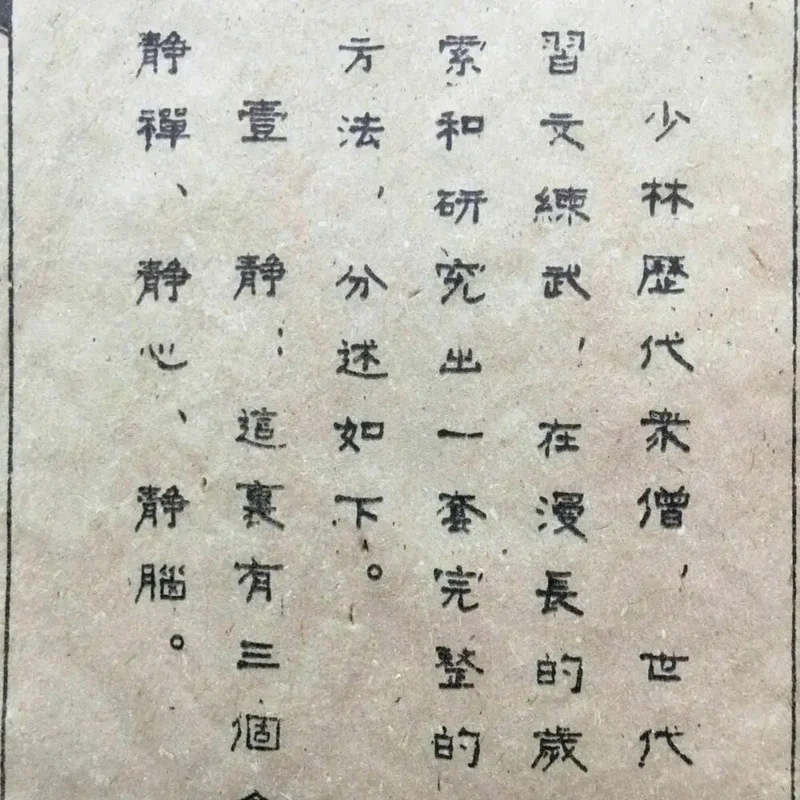 少林歷代衆僧，世代
習文練武，在漫長的歲
索和研究出一套完整的
方法，分述如下。
壹　静：這裏有三個
静禪、静心、静腦。